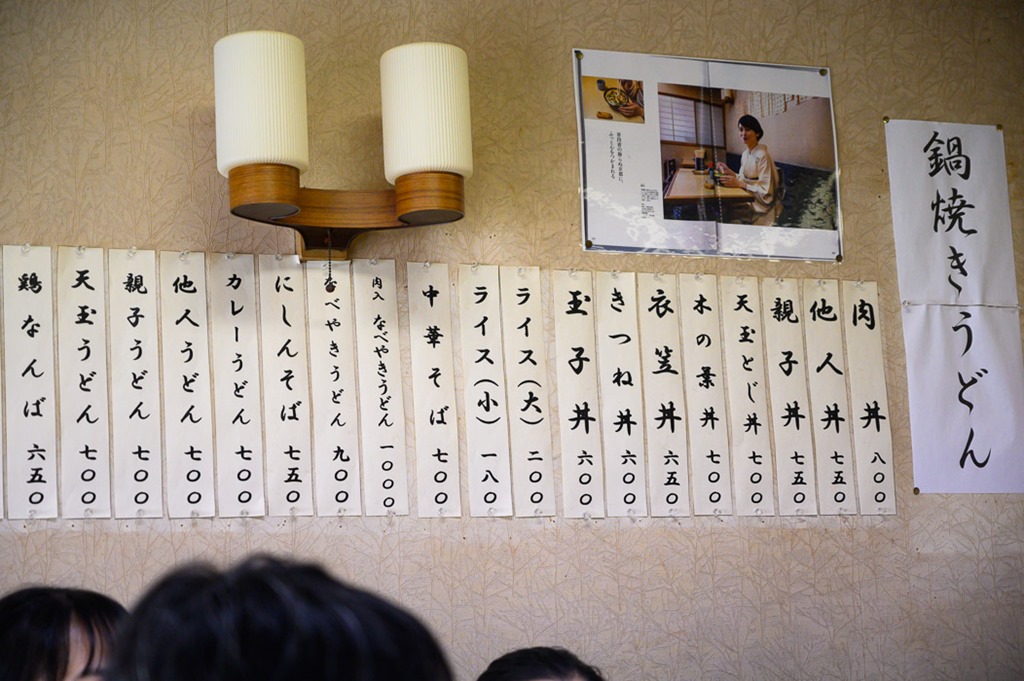 鍋焼きうどん
肉丼 八〇〇
他人丼 七五〇
親子丼 七五〇
天玉とじ丼 七〇〇
木の葉丼 七〇〇
衣笠丼 六五〇
きつね丼 六〇〇
玉子丼 六〇〇
ライス(大) 二〇〇
ライス(小) 一八〇
中華そば 七〇〇
肉入なべやきうどん 一〇〇〇
べやきうどん 九〇〇
にしんそば 七五〇
カレーうどん 七〇〇
他人うどん 七〇〇
親子うどん 七〇〇
天玉うどん 七〇〇
鶏なんば 六五〇